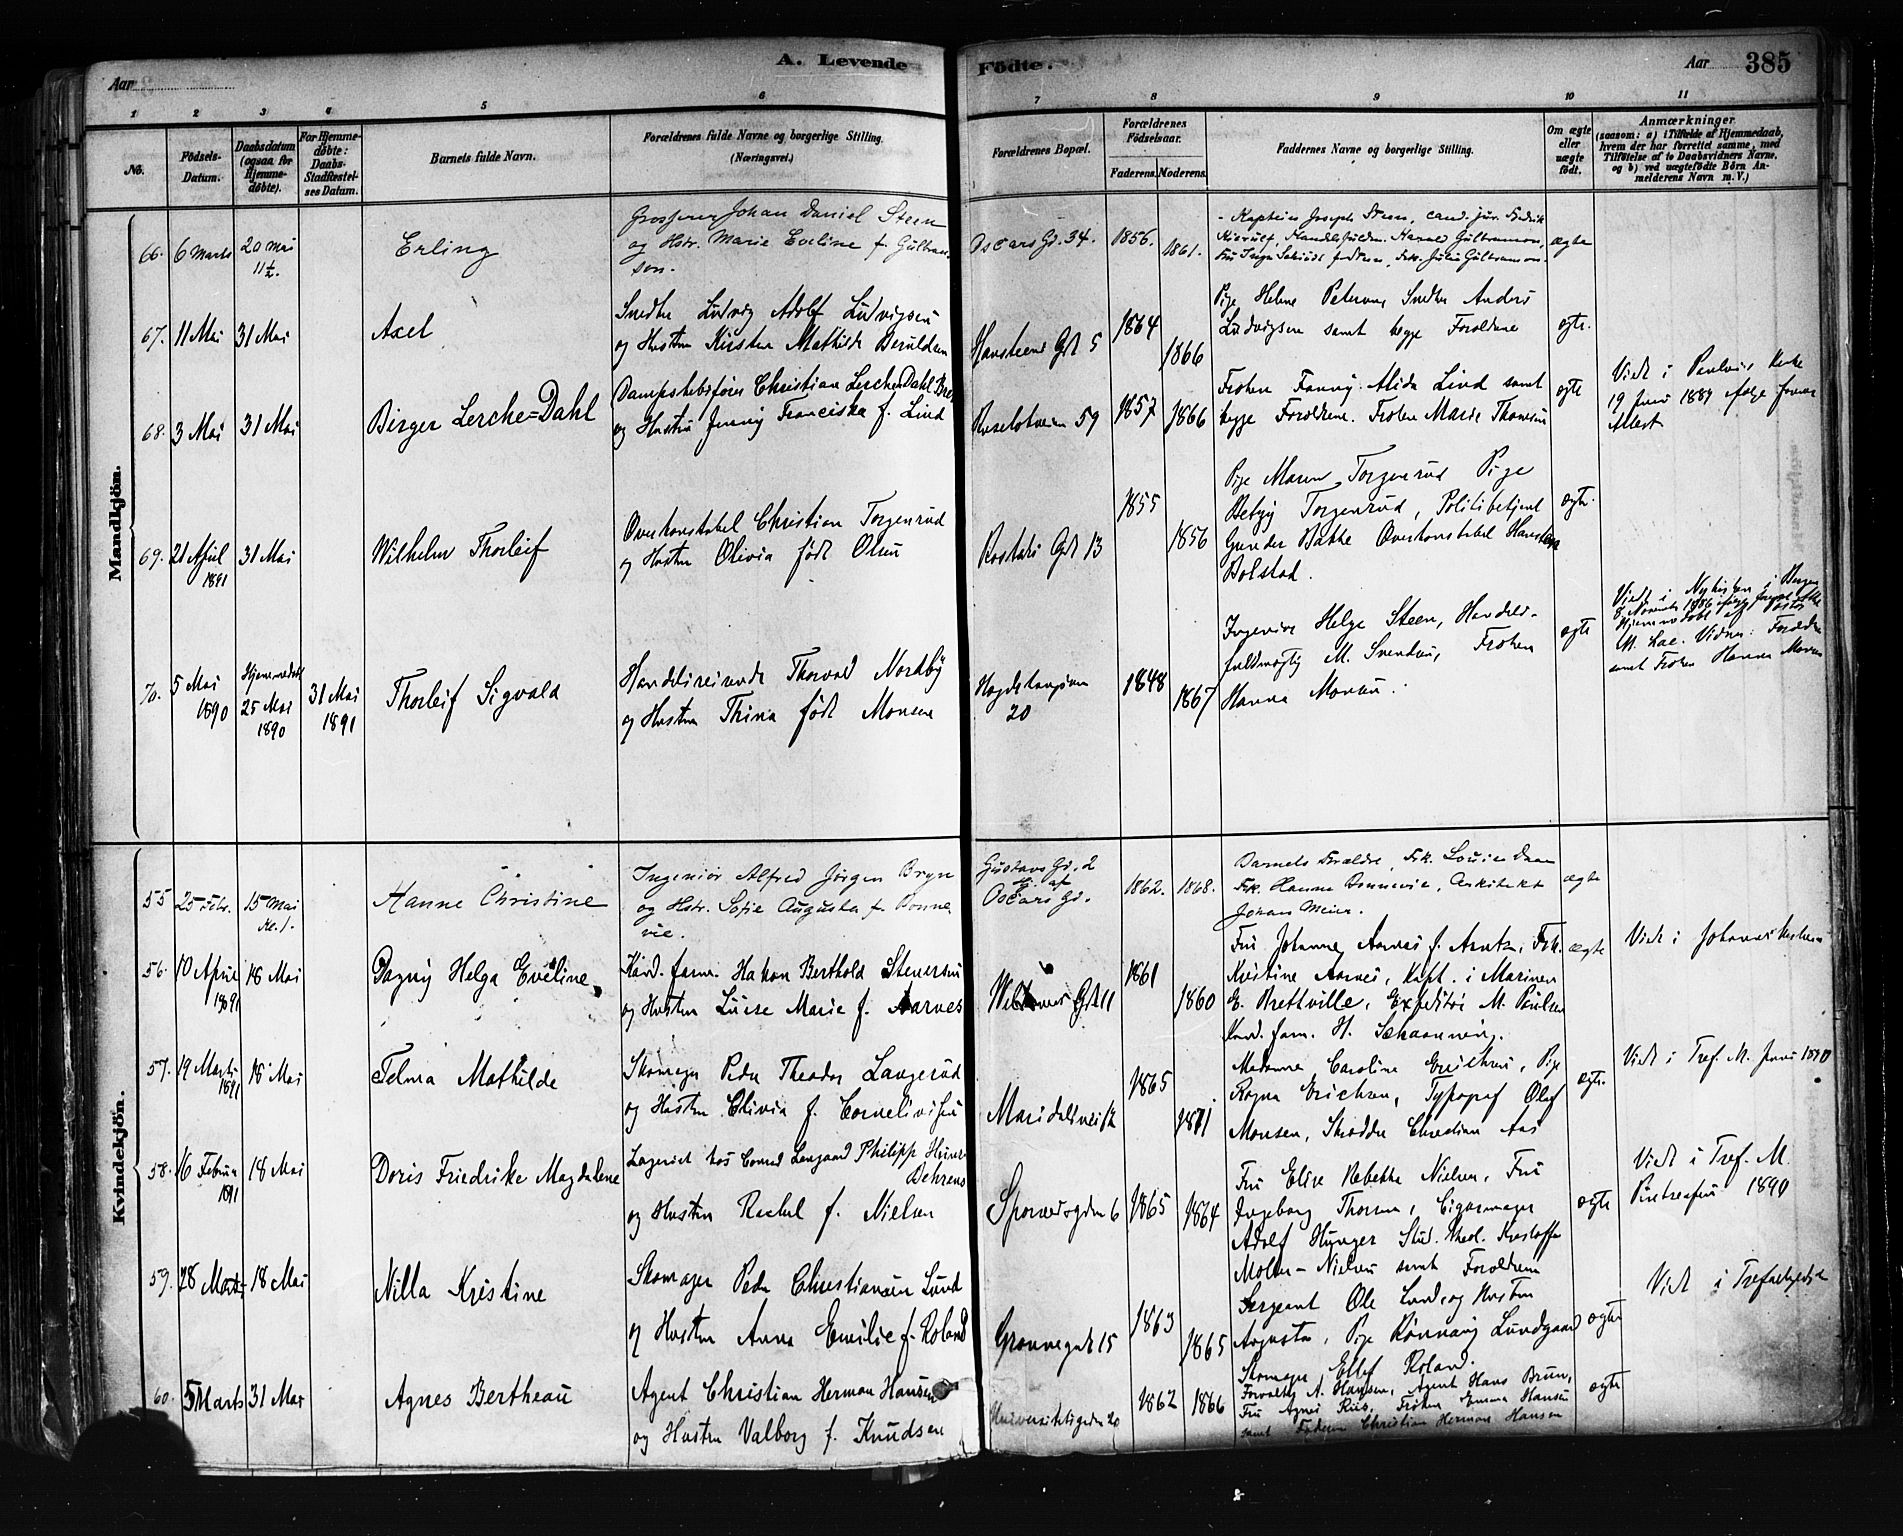 A. Levende Födte.
Aar
Aar 385
1 2 3 4 5 6 7 8 9 10 11
No.
Födsels-Datum.
Daabsdatum (ogsaa for Hjemmedöbte).
For Hjemmedöbte: Daabs-Stadfæstelses Datum.
Barnets fulde Navn.
Forældrenes fulde Navne og borgerlige Stilling. (Næringsvei.)
Forældrenes Bopæl.
Forældrenes Födselsaar.
Faderens. Moderens.
Faddernes Navne og borgerlige Stilling.
Om ægte eller uægte født.
Anmærkninger
(saasom: a) i Tilfælde af Hjemmedaab, hvem der har forrettet samme, med Tilföielse af to Daabsvidners Navne, og b) ved uægtefödte Börn Anmelderens Navn m. V.)
Mandkjön.
66. 6 Marts 20 Mai 11½.
Erling
Grosserer Johan Daniel Steen
og Hstr. Marie Eveline f. Gulbran
sen.
Oscars Gd. 34. 1856. 1861.
Kaptein Joseph Steen, cand. jur. Fredrik
ægte
67. 11 Mai 31 Mai
Axel
Snedker Ludvig Adolf Ludvigsen
og Hustru Kirsten Mathilde Beruldsen
Hansteens Gd. 5 1864 1866
Pige Helene Petersen, Snedker Anders
Ludvigsen samt begge Forældrene
ægte.
68. 3 Mai 31 Mai
Birger Lerche=Dahl
Dampskibsfører Christian Lerche Dahl
og Hustru Jenny Franciska f. Lind
59 1857 1866
Frøken Fanny Alida Lind samt
begge Forældrene. Frøken Marie Thomesen
ægte
Viet i Paulus Kirke
19 Juni 1889 ifølge forevist
Attest
69. 21 April 1891 31 Mai
Wilhelm Thorleif
Overkonstabel Christian Torgenrud
og Hustru Olivia født Olsen
Gd. 13 1855 1856
Pige Maren Torgenrud Pige
Betzy Torgenrud, Politibetjent
Gunder Bakke Overkonstabel
Bolstad.
ægte.
70. 5 Mai 1890 Hjemmedøbt 25 Mai 1890 31 Mai 1891
Thorleif Sigvald
Handelsreisende Thorvald Nordby
og Hustru Thina født Monsen
20 1848 1867
Ingeniør Helge Steen, Handels-
fuldmægtig M. Svendsen, Frøken
Hanna Monsen.
ægte
Viet i Nykirken i Bergen
8 November 1886 ifølge forevist Attest
Hjemmedøbt af Pastor
M. Lae. Vidner: Forældre
samt Frøken Hanna Monsen
Kvindekjön.
55 25 Febr. 15 Mai Kl. 1.
Hanne Christine
Ingeniør Alfred Jörgen Bryn
og Hstr. Sofie Augusta f. Bonne
vie.
Gustavs Gd. 2
Oscars Gd. 1862. 1868.
Barnets Forældre, Frk. Louise Daae
Frk. Hanna Bonnevie, Arkitekt
Johan Meier.
ægte
56. 10 April 1891 18 Mai
Dagny Helga Eveline
Kand. farm. Hakon Berthold Stenersen
og Hustru Luise Marie f. Aarnes
Gd. 11 1861 1860
Fru Johanne Aarnes f. Arntz, Frk.
Kristine Aarnes, Kapt. i Marinen
E. Brettville, Expeditør M. Paulsen
Kand. farm. H. Schaanning.
ægte
Viet i Johanneskirken
57. 19 Marts 1891 18 Mai
Telma Mathilde
Skomager Peder Theodor Langerud
og Hustru Olivia f. Corneliussen
Maridalsvei 12 1865 1871
Madame Caroline Erichsen, Pige
Ragna Erichsen, Typograf Olaf
Monsen, Skrædder Christian Aas
ægte.
Viet i Tref. M. Juni 1890
58. 16 Februar 1891 18 Mai
Doris Friedrike Magdalene
Lagerist hos Conrad Langaard Philipp Heinr.
Behrens
og Hustru Rachel f. Nielsen
Sporveisgaden 6 1865 1864
Fru Elise Rebekka Nielsen, Fru
Ingeborg Thorsen, Cigarmager
Adolf Hunger Stud. theol. Kristoffer
Moller-Nielsen samt Forældrene
ægte
Viet i Tref. M.
Pintseaften 1890
59. 28 Marts 18 Mai
Nilla Kristine
Skomager Peder Christiansen Lund
og Hustru Anna Emilie f. Roland
Grønnegade 15 1863 1865
Sergeant Ole Lund, og Hustru
Augusta, Pige Rønnaug Lundgaard
Skomager Ellef Roland.
ægte
Viet i Trefoldighed
60. 5 Marts 31 Mai
Agnes Bertheau
Agent Christian Herman Hansen
og Hustru Valborg f. Knudsen
Universitetsgaden 20 1862 1866
Forvalter A. Hansen, Agent Hans Bruun,
Fru Agnes Riis, Frøken Emma Hansen
samt Faderen Christian Herman Hansen
ægte